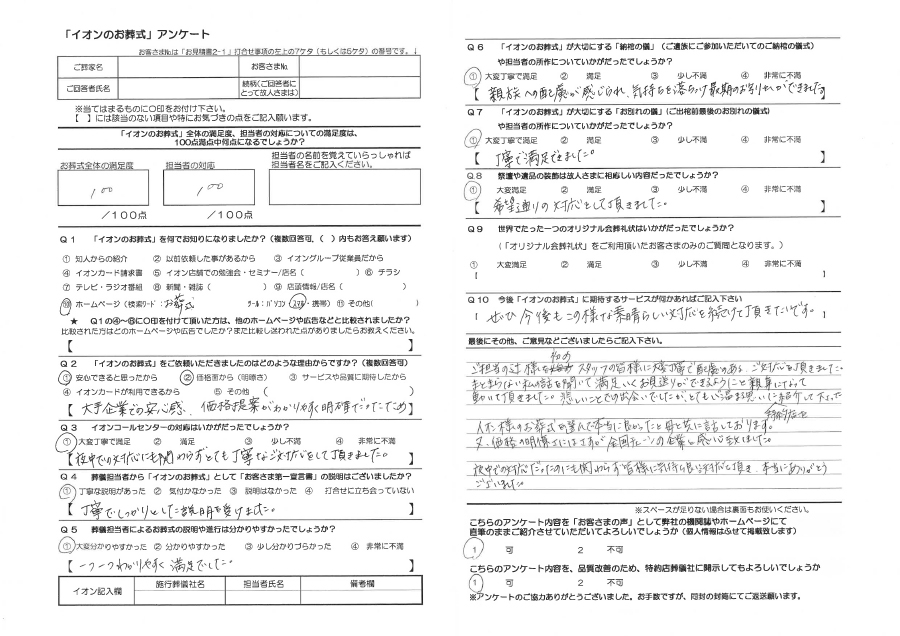 「イオンのお葬式」アンケート
お客さま№は「お見積書2-1」打合せ事項の左上の7ケタ(もしくは5ケタ)の番号です。↓
ご葬家名 お客さま№
ご回答者氏名 続柄(ご回答者にとって故人さまは)
※当てはまるものに○印をお付け下さい。
【 】には該当のない項目や特にお気づきの点をご記入願います。
「イオンのお葬式」全体の満足度、担当者の対応についての満足度は、
100点満点中何点になるでしょうか?
お葬式全体の満足度 担当者の対応 担当者の名前を覚えていらっしゃれば担当者名をご記入ください。
100 100
/100点 /100点
Q1 「イオンのお葬式」を何でお知りになりましたか?(複数回答可、( )内もお答え願います)
① 知人からの紹介 ② 以前依頼した事があるから ③ イオングループ従業員だから
④ イオンカード請求書 ⑤ イオン店舗での勉強会・セミナー/店名( ) ⑥ チラシ
⑦ テレビ・ラジオ番組 ⑧ 新聞・雑誌( ) ⑨ 店頭情報/店名( )
⑩ ホームページ(検索ワード:お葬式 ツール:パソコン・スマホ・携帯) ⑪ その他( )
★ Q1の④~⑥に○印を付けて頂いた方は、他のホームページや広告などと比較されましたか?
比較された方はどのホームページや広告でしたか?また比較し迷われた点がありましたらお教えください。
【 】
Q2 「イオンのお葬式」をご依頼いただきましたのはどのような理由からですか?(複数回答可)
① 安心できると思ったから ② 価格面から(明瞭さ) ③ サービスや品質に期待したから
④ イオンカードが利用できるから ⑤ その他( )
【大手企業との安心感、価格提案がわかりやすく明確だったため】
Q3 イオンコールセンターの対応はいかがだったでしょうか?
① 大変丁寧で満足 ② 満足 ③ 少し不満 ④ 非常に不満
【夜中での対応にも関わらずとても丁寧なご対応をして頂きました。】
Q4 葬儀担当者から「イオンのお葬式」として「お客さま第一宣言書」の説明はございましたか?
① 丁寧な説明があった ② 気付かなかった ③ 説明はなかった ④ 打合せに立ち会っていない
【丁寧でしっかりとした説明を受けました。】
Q5 葬儀担当者によるお葬式の説明や進行は分かりやすかったでしょうか?
① 大変分かりやすかった ② 分かりやすかった ③ 少し分かりづらかった ④ 非常に不満
【一つ一つわかりやすく満足でした。】
イオン記入欄 施行葬儀社名 担当者氏名 備考欄
Q6 「イオンのお葬式」が大切にする「納棺の儀」(ご遺族にご参加いただいてのご納棺の儀式)
や担当者の所作についていかがだったでしょうか?
① 大変丁寧で満足 ② 満足 ③ 少し不満 ④ 非常に不満
【親族への配慮が感じられ、気持ちを落らつけ最期のお別れができました】
Q7 「イオンのお葬式」が大切にする「お別れの儀」(ご出棺前最後のお別れの儀式)
や担当者の所作についていかがだったでしょうか?
① 大変丁寧で満足 ② 満足 ③ 少し不満 ④ 非常に不満
【丁寧で満足できました。】
Q8 祭壇や遺品の装飾は故人さまに相応しい内容だったでしょうか?
① 大変満足 ② 満足 ③ 少し不満 ④ 非常に不満
【希望通りの対応をして頂きました。】
Q9 世界でたった一つのオリジナル会葬礼状はいかがだったでしょうか?
(「オリジナル会葬礼状」をご利用頂いたお客さまのみのご質問となります。)
① 大変満足 ② 満足 ③ 少し不満 ④ 非常に不満
【 】
Q10 今後「イオンのお葬式」に期待するサービスが何かあればご記入下さい
【ぜひ今後もこの様な素晴らしい対応を続けて頂きたいです。】
最後にその他、ご意見などございましたらご記入下さい。
ご担当の辻様を初めスタッフの皆様に大変丁寧で配慮のある、ご対応を頂きました。
まとまらない私の話を聞いて満足いくお見送りができるようにと親身になって
動いて頂きました。悲しいことでの出会いでしたが、とても心温まる思いに
イオン様のお葬式を選んで本当に良かったと母と共に話しております。
又、価格の明確さにはさすが全国チェーンの企業と感心致しました。
夜中での対応だったのにも関わらず皆様に気持ち良い対応を頂き、本当にありがとう
ございました。
※スペースが足りない場合は裏面もお使いください。
こちらのアンケート内容を「お客さまの声」として弊社の機関誌やホームページにて
直筆のままご紹介させていただいてよろしいでしょうか(個人情報はふせて掲載致します)
1 可 2 不可
こちらのアンケート内容を、品質改善のため、特約店葬儀社に開示してもよろしいでしょうか
1 可 2 不可
※アンケートのご協力ありがとうございました。お手数ですが、同封の封筒にてご返送願います。